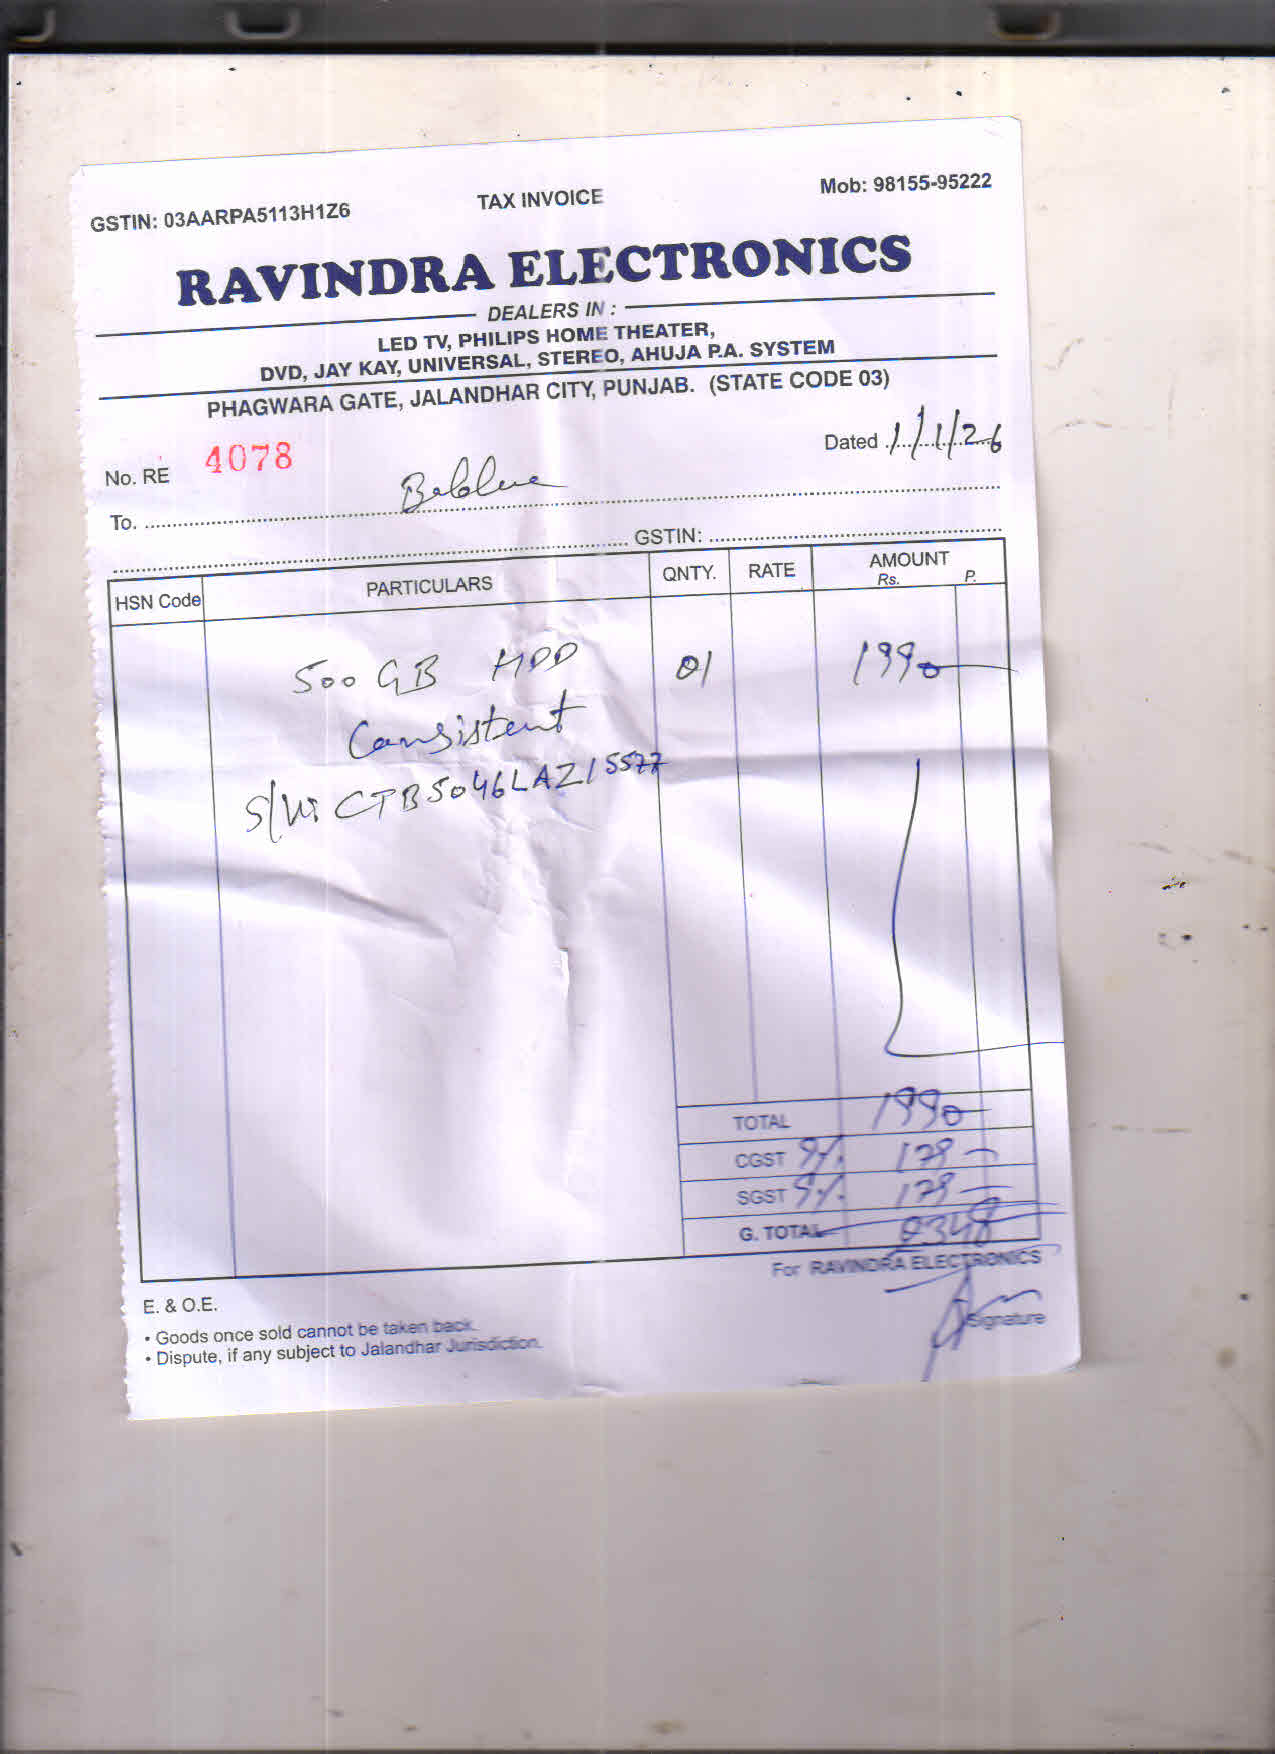 GSTIN: 03AARPA5113H1Z6 TAX INVOICE Mob: 98155-95222
RAVINDRA ELECTRONICS
DEALERS IN :
LED TV, PHILIPS HOME THEATER,
DVD, JAY KAY, UNIVERSAL, STEREO, AHUJA P.A. SYSTEM
PHAGWARA GATE, JALANDHAR CITY, PUNJAB. (STATE CODE 03)
No. RE 4078 Dated 1/1/26
To.
GSTIN:
HSN Code PARTICULARS QNTY. RATE AMOUNT
Rs. P.
500 GB HDD 01 1990
Consistent
CTB5046LAZ15577
TOTAL 1990
CGST 9% 179
SGST 9% 179
G. TOTAL 2348
For RAVINDRA ELECTRONICS
Signature
E. & O.E.
• Goods once sold cannot be taken back.
• Dispute, if any subject to Jalandhar Jurisdiction.